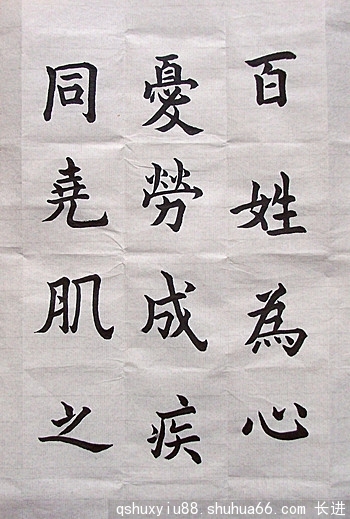 百姓為心
憂勞成疾
同堯肌之
qshuxyiu88.shuhua66.com 长进